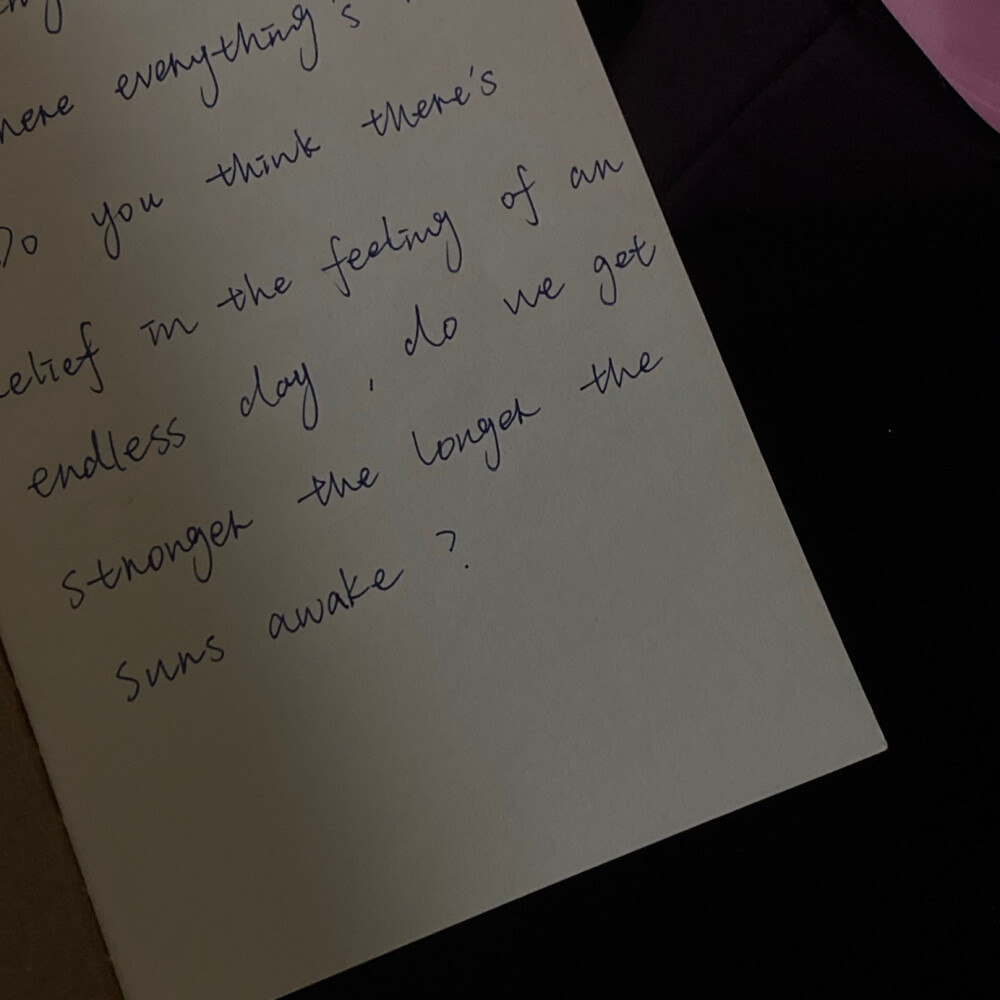 everything's
Do you think there's
in the feeling of an
endless day, do we get
stronger the longer the
suns awake?